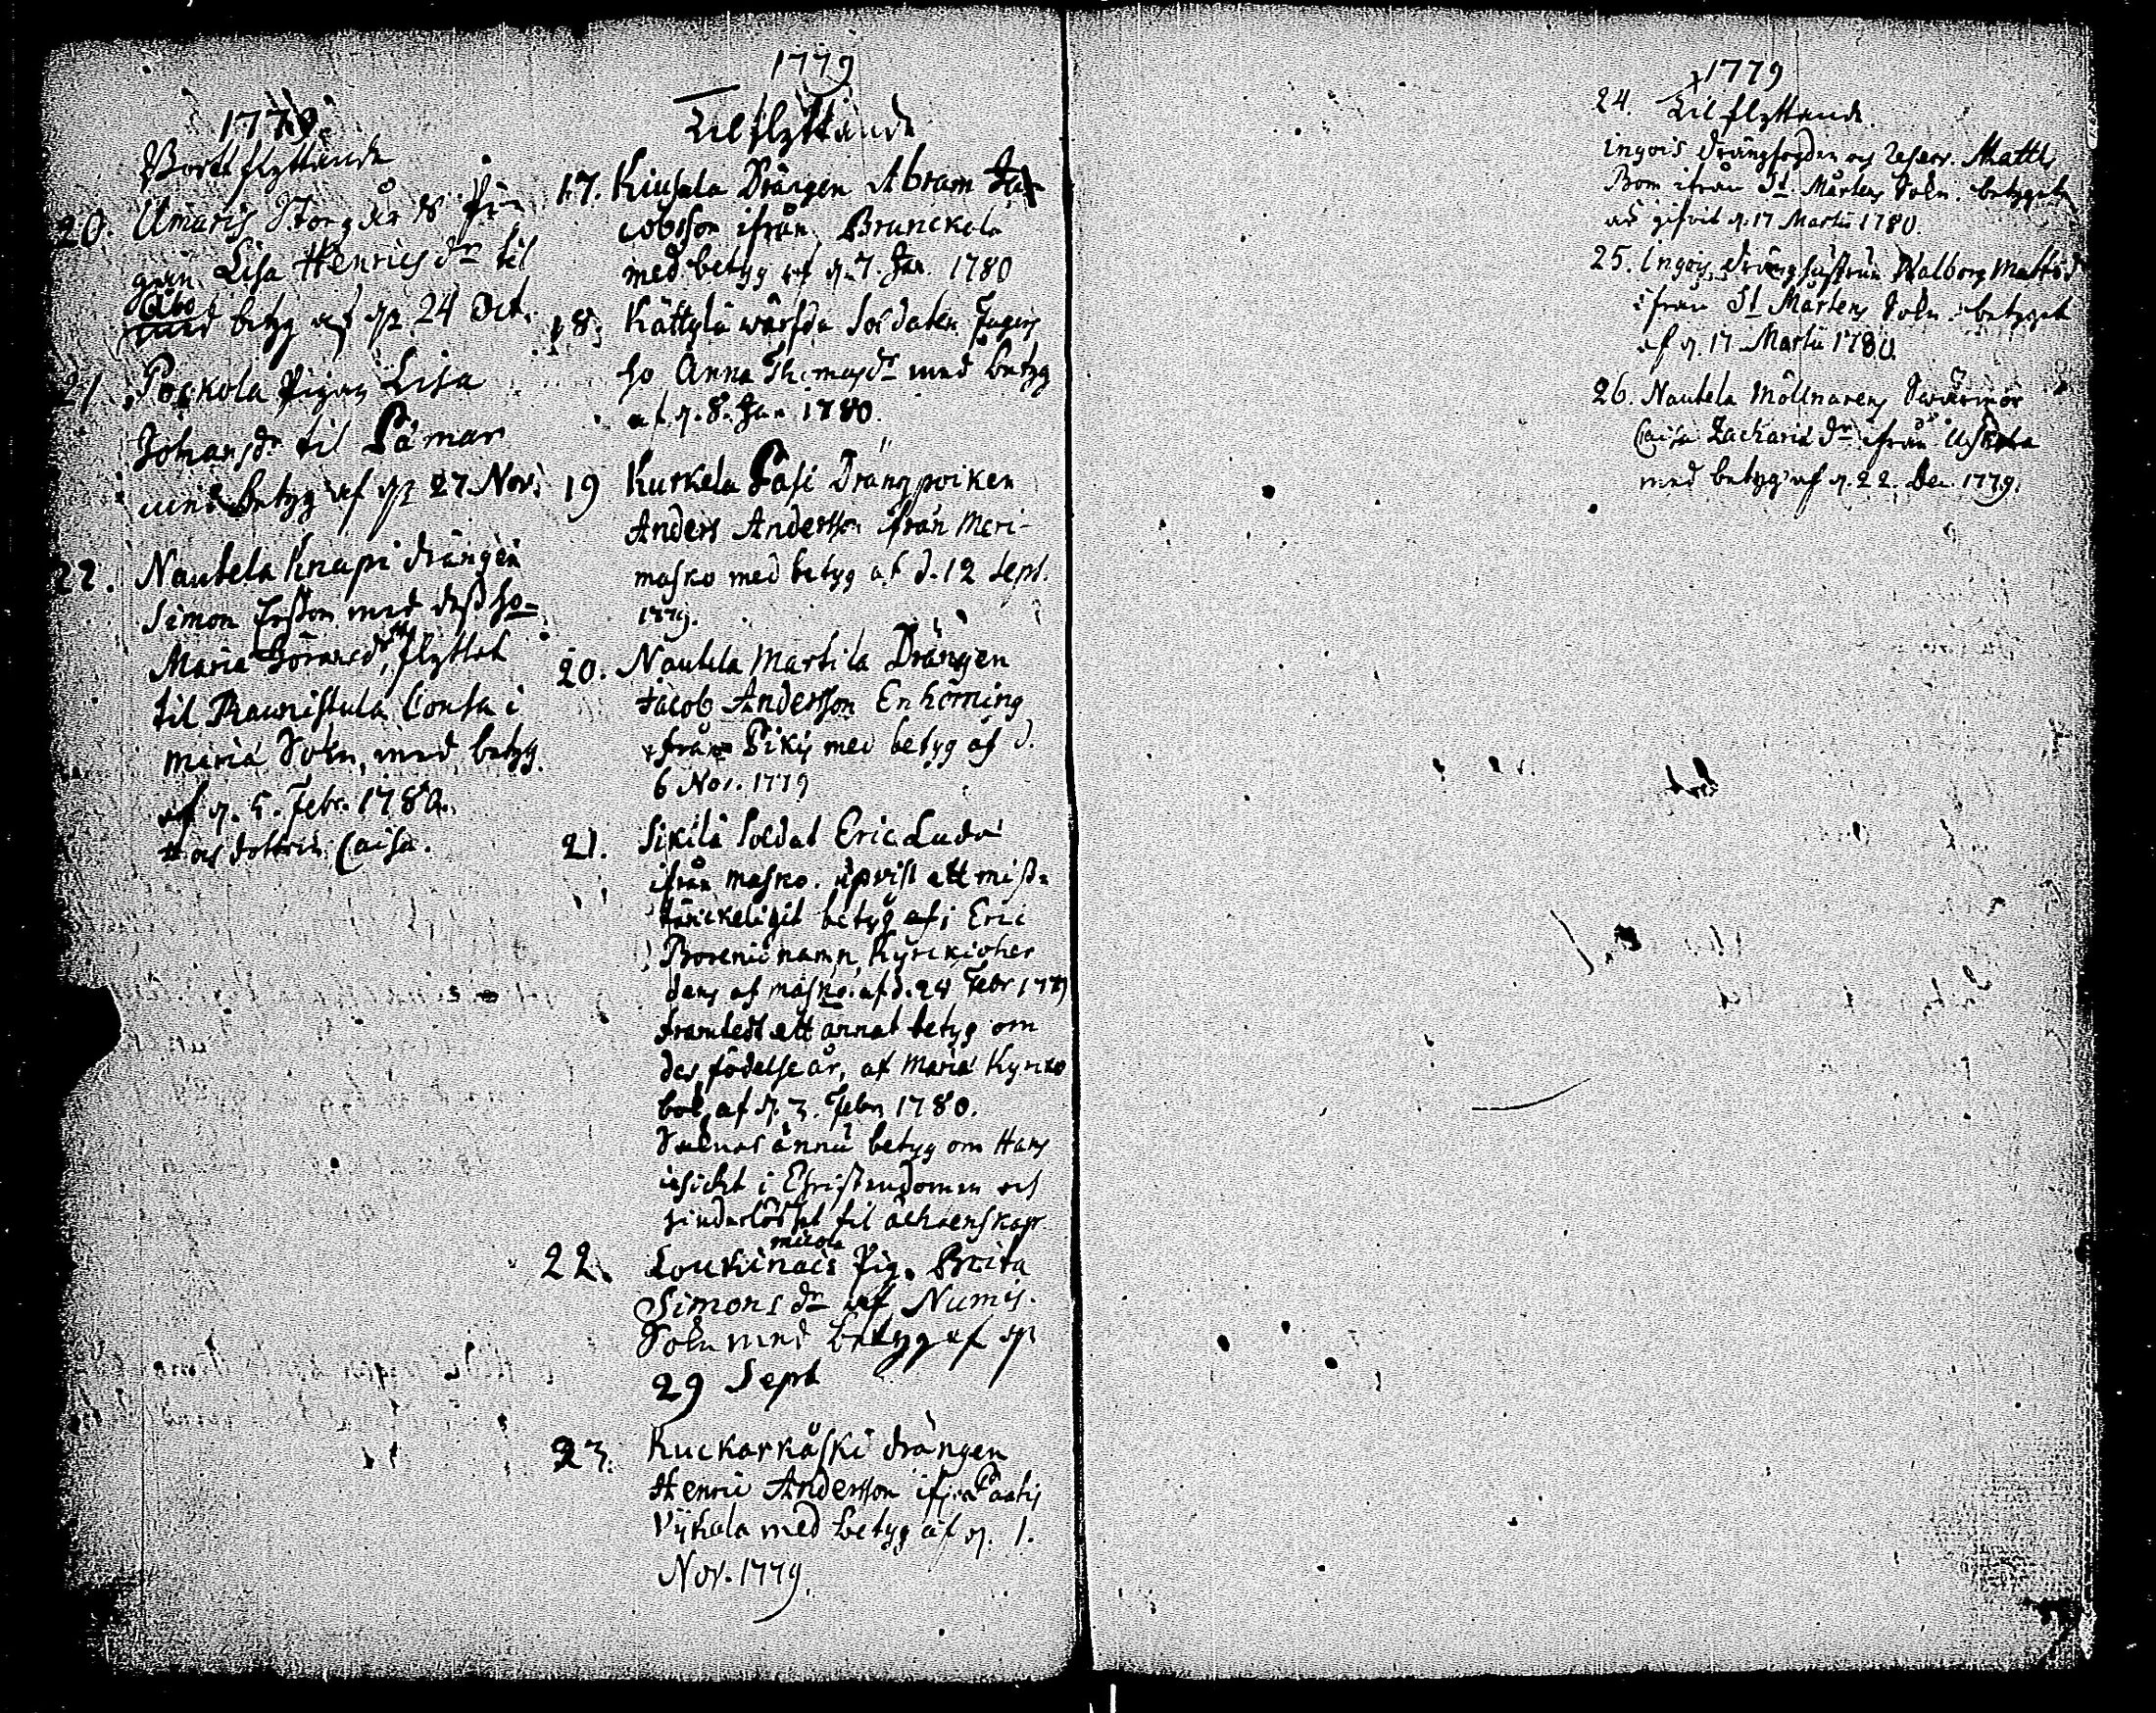 1779
Bortflyttande
20. Umaris Storgårds Pi-
gan Lisa Henricsdr til
Åbo
med betyg af d. 24 Oct.
21. Pockola Pigan Lisa
Johansdr til Pämar
med betyg af d. 27 Nov.
22. Nautela Knapi drängen
Simon Ersson med dess ho-
Maria flyttat
til Raunistula Consa i
Maria Sokn, med betyg
af d. 5. Febr. 1780.
# och dottren Caisa.
1779
Tilflyttande
17. Kiusala Drängen Abram Ja-
cobsson ifrån Brunckala
med betyg af d. 7. Jan. 1780
18. Kättylä wärfda Soldaten
ho Anna Thomasdr med betyg
af d. 8. Jan 1780.
19 Kurkela Pafi Drängpoiken
Anders Andersson ifrån Meri-
masko med betyg af d. 12 Sept.
1779.
20. Nautela Martila Drängen
Jacob Andersson Enhörning
ifrån Pikis med betyg af d.
6 Nov. 1779
21. Sikilä Soldat Eric
ifrån Masko. upvist ett miss-
tänckeligit betyg af Eric
namn, Kyrckioher
dens af Masko. af d. 24 Febr 1779
framtedt ett annat betyg om
des födelseår, af Mariæ Kyrko
bok, af d. 3. Febr 1780.
Saknas ännu betyg om Hans
insickt i Christendomen och
hinderlöshet til äcktenskap
22. Loukinais Pig. Brita
Simonsdr af Numis
Sokn med betyg af d.
29 Sept
23. Kuckarkåski drängen
Henric Andersson ifrån
med betyg af d. 1.
Nov. 1779.
1779
24. Tilflyttande
Ingois Drängfogden och Matth.
Bom ifrån St Mårtens Sokn. betyget
är gifvit d. 17 Martii 1780.
25. Ingois Dränghustrun Walborg Mattsdr
ifrån St Mårtens Sokn. betyget
af d. 17 Martii 1780.
26. Nautela Möllnarens Swärmor
Caisa Zachariædr ifrån
med betyg af d. 22. Dec. 1779.